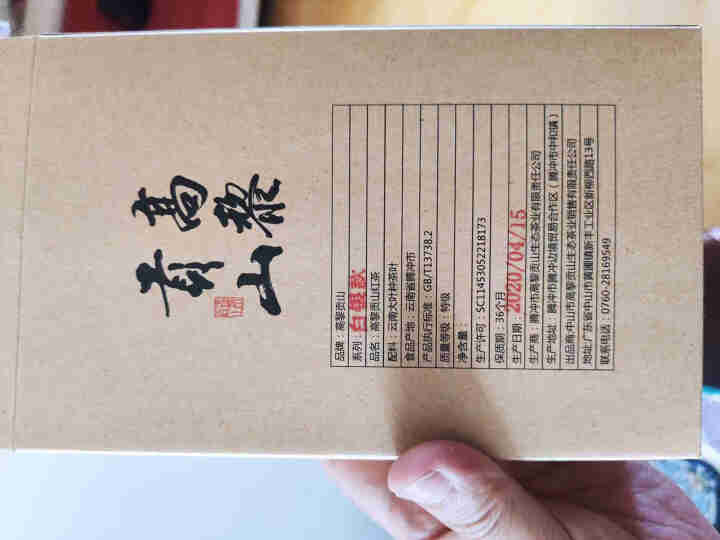 高黎
贡山
品牌：高黎贡山
系列：白银款
品名：高黎贡山红茶
配料：云南大叶种茶叶
食品产地：云南省腾冲市
产品执行标准：GB/T13738.2
质量等级：特级
净含量：
生产许可：SC11453052218173
保质期：36个月
生产日期：2020/04/15
生产商：腾冲市高黎贡山生态茶业有限责任公司
生产地址：腾冲市腾冲边境贸易合作区（腾冲市中和镇）
出品商：中山市高黎贡山生态茶业销售有限责任公司
地址：广东省中山市黄圃镇新丰工业区新柳西路13号
联系电话：0760-28169549